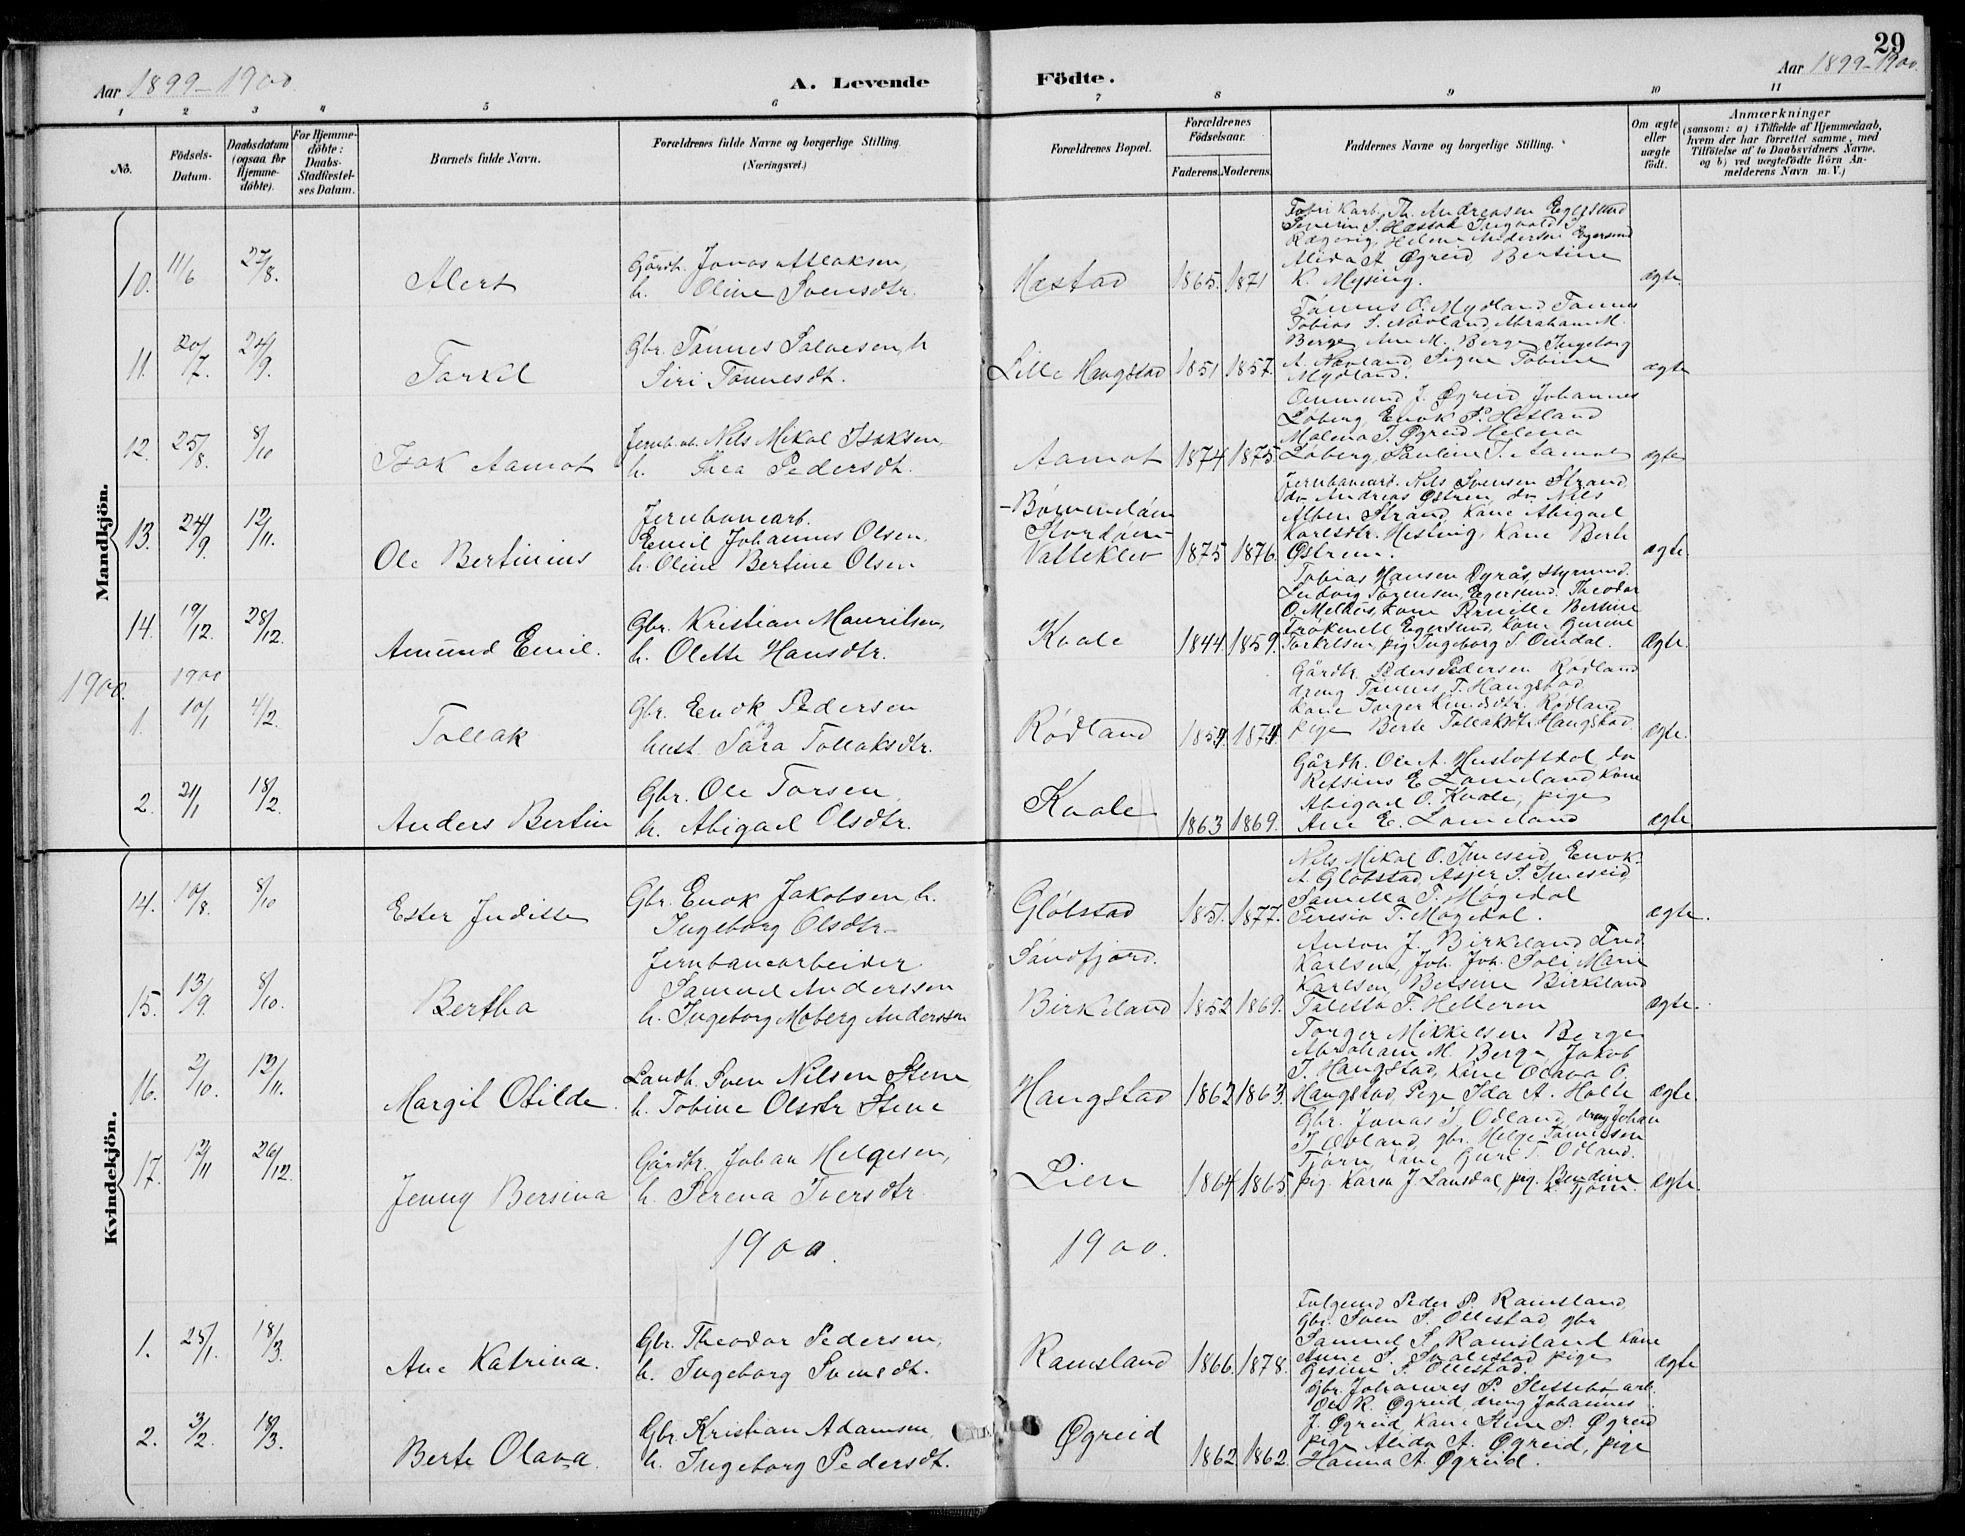 29
Aar 1899-1900.
A. Levende Födte.
Aar 1899-1900.
1 2 3 4 5 6 7 8 9 10 11
No.
Födsels-Datum.
Daabsdatum (ogsaa for Hjemme-döbte).
For Hjemme-döbte: Daabs-Stadfæstel-ses Datum.
Barnets fulde Navn.
Forældrenes fulde Navne og borgerlige Stilling.
(Næringsvei.)
Forældrenes Bopæl.
Forældrenes Födselsaar.
Faderens. Moderens.
Faddernes Navne og borgerlige Stilling.
Om ægte eller uægte födt.
Anmærkninger
(saasom: a) i Tilfælde af Hjemmedaab, hvem der har forrettet samme, med Tilföielse af to Daabsvidners Navne, og b) ved uægtefödte Börn An-melderens Navn m. V.)
Mandkjön.
10. 11/6 27/8. Alert
Gårdb. Jonas Aslaksen,
h. Oline Svensdtr.
Hæstad 1865. 1871
Fabrikarb. Th. Andreasen Egersund
Severin S. Hæstad Ingvald S.
Rægevig, Helene Anderson Egersund
Alida A Øgreid Bertine
K. Mysing.
ægte
11. 20/7. 24/9. Torkel
Gbr. Tønnes Salvesen, h
Siri Tønnesdt.
Lille Haugstad 1851 1857.
Tønnes O. Mydland Tønnes
Tobias S. Nævland, Abraham M.
Berge, Ane M. Berge Ingeborg
A. Nævland, Signe Tobine
Mydland.
ægte
12. 25/8. 8/10 Isak Aamot
Jernb. ab. Nils Mikal Isaksen
h. Thea Pedersdt.
Aamot 1874 1875.
Ommund J. Øgreid Johannes
Løberg, Enok P. Hetland
Malena J. Øgreid Helena
Løberg, Pauline J. Aamot
ægte
13. 24/9. 12/11. Ole Bertinius
Jernbanearb.
Emil Johannes Olsen,
h. Oline Bertine Olsen
Valleklev 1875 1876.
Jernbanearb. Nils Svensen Strand
do Andreas Østren, do. Nils
Albert Strand, Kone Abigael
Karlsdtr. Hesting, Kone Berte
Østrem.
ægte.
14. 19/12. 28/12. Amund Emil.
Gbr. Kristian Mauritsen,
h. Olette Hansdtr.
Kvale 1844. 1859.
Tobias Hansen Dyrås, styrmd.
Ludvig Sørensen, Egersund. Theodor
O. Melhus, kone Pernille Bertine
Egersund, kone Gurine
Torkelsen, pig. Ingeborg S. Omdal.
Ægte.
1900. 1900
1. 10/1 4/2. Tollak
Gbr. Enok Pedersen
og
hust. Sara Tollaksdtr.
Rødland 1854. 1874.
Gårdbr. Peder Pedersen Rødland
dreng Tønnes T. Haugstad
Kone Torger Knudsdtr. Rødland
pige Berte Tollaksdt. Haugstad.
ægte.
2. 21/1 18/2. Anders Bertin
Gbr. Ole Torsen,
h. Abigael Olsdtr.
Kvale 1863 1869.
Gårdb. Ole A. Hustoftdal, do
Retsius E. Lomeland Kone
Abigael O. Kvale, pige
Ane E. Lomeland
ægte
Kvindekjön.
14. 10/8. 8/10 Ester Juditte
Gbr. Enok Jakobsen h.
Ingeborg Olsdtr.
Gløbstad 1851. 1877.
Nils Mikal O. Tuneseid, Enok
A. Gløbstad, Asjer S. Tuneseid,
Samella T. Møgedal
Teresia T. Møgedal.
ægte.
15. 13/9. 8/10. Bertha
Jernbanearbeider
Samuel Anderssen
h. Ingeborg Moberg Anderssen
Søndfjord.
Birkeland 1852 1869.
Anton J. Birkeland Fred.
Karlsen, Joh. Joh. Soli, Marie
Karlsen, Betsine Birkeland
Taletta T. Helleren
ægte.
16. 2/10. 12/11. Margit Otilde.
Landh. Sven Nilsen Stene
h. Tobine Olsdtr Stene
Haugstad 1862 1863.
Torger Mikkelsen Berge
Abraham M. Berge, Jakob
T. Haugstad, Kone Olava O.
Haugstad, Pige Ida A. Holte
ægte.
17. 12/11 26/12. Jenny Bersina
Gårdbr. Johan Helgesen,
h. Serena Iversdtr
Lien 1864 1865.
Gbr. Jonas T. Odland, dreng Johan
T. Odland, gbr. Helge Tønnesen
Tjørn, kone Guri T. Odland.
pig. Karen J Lansdal, pig. Bendine
K. Tjørn.
ægte.
1900. 1900.
1. 25/1. 18/3. Ane Katrina.
Gbr. Theodor Pedersen,
h. Ingeborg Svensdt.
Ramsland 1866. 1878.
Folgemd. Peder P. Ramsland,
Gbr. Sven S. Ollestad, gbr
Samuel S. Ramsland Kone
Anne S. Svalestad pige
Gesine S. Ollestad.
ægte
2. 3/2. 18/3. Berte Olava.
Gbr. Kristian Adamsen,
h. Ingeborg Pedersdt.
Øgreid 1862 1862
Gbr. Johannes P. Slettebø arb.
Ole R. Øgreid, dreng Johannes
J. Øgreid, Kone Stine P. Øgreid
pige Alida A. Øgreid, pige
Hanna A. Øgreid.